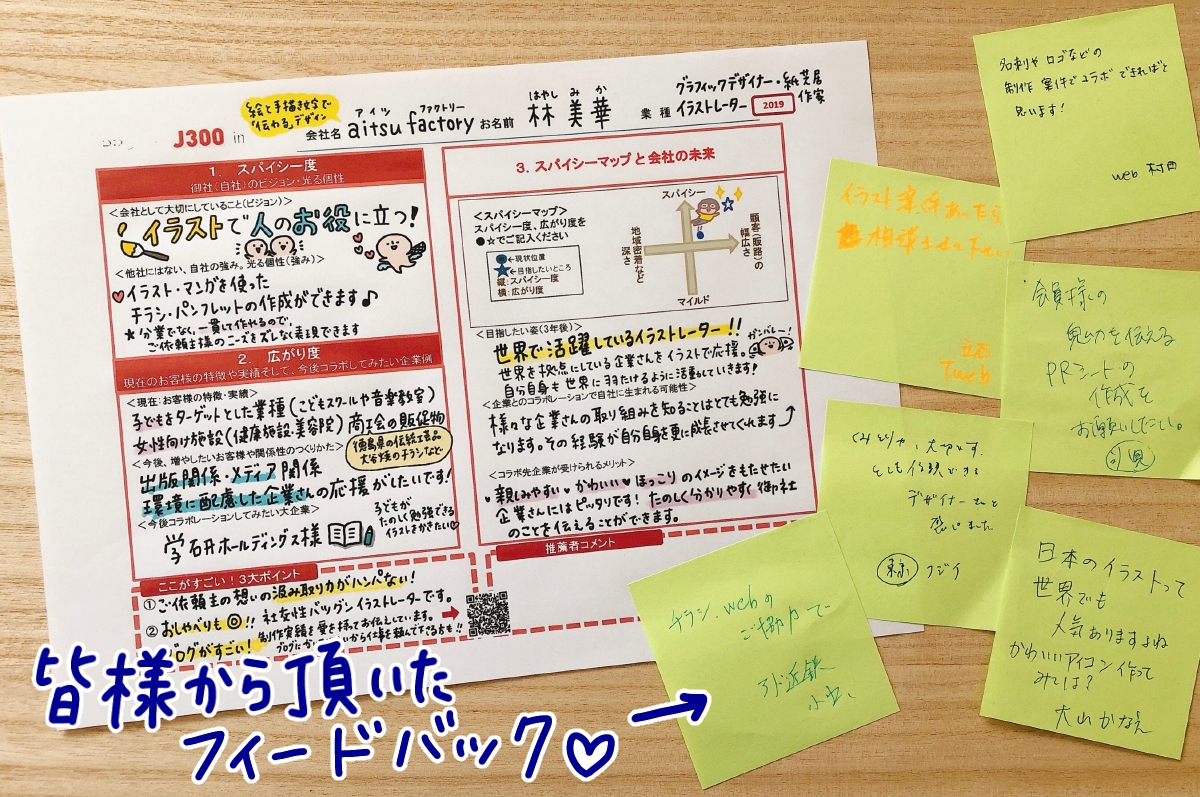 絵と手描き文字で
「伝わる」デザイン
J300 in
アイツ ファクトリー
会社名 aitsu factory
はやし みか
お名前 林 美華
グラフィックデザイナー・紙芝居作家
業種 イラストレーター
2019
1. スパイシー度
御社(自社)のビジョン・光る個性
<会社として大切にしていること(ビジョン)>
イラストで人のお役に立つ!
<他社にはない、自社の強み。光る個性(強み)>
イラスト・マンガを使った
チラシ・パンフレットの作成ができます♪
★分業でなく、一貫して作れるので、
ご依頼主様のニーズをズレなく表現できます
2. 広がり度
現在のお客様の特徴や実績そして、今後コラボしてみたい企業例
<現在:お客様の特徴・実績>
子どもをターゲットとした業種(こどもスクールや音楽教室)
女性向け施設(健康施設・美容院) 商工会の販促物
徳島県の伝統工芸品
大谷焼のチラシなど
<今後、増やしたいお客様や関係性のつくりかた>
出版関係・メディア関係
環境に配慮した企業さんの応援がしたいです!
<今後コラボレーションしてみたい大企業>
学 石井ホールディングス様
子どもが
たのしく勉強できる
イラストをかきたい♡
ここがすごい!3大ポイント
①ご依頼主の想いの汲み取り力がハンパない!
②おしゃべりも◎!! 社交性バツグンイラストレーターです。
ブログがすごい!
制作実績を愛を持ってお伝えしています。
3. スパイシーマップと会社の未来
<スパイシーマップ>
スパイシー度、広がり度を
●☆でご記入ください
←現状位置
←目指したいところ
縦:スパイシー度
横:広がり度
スパイシー
地域密着など
深さ
顧客(販路)の
幅広さ
マイルド
<目指したい姿(3年後)>
世界で活躍しているイラストレーター!!
ガンバレー!
世界を拠点にしている企業さんをイラストで応援。
自分自身も世界に羽ばたけるように活動していきます!
<企業とのコラボレーションで自社に生まれる可能性>
様々な企業さんの取り組みを知ることはとても勉強に
なります。その経験が自分自身を更に成長させてくれます
<コラボ先企業が受けられるメリット>
親しみやすい♥かわいい♥ほっこりのイメージをもたせたい
企業さんにはピッタリです!たのしく分かりやすく御社
のことを伝えることができます。
推薦者コメント
名刺やロゴなどの
制作案件でコラボできればと
思います!
web 村田
イラスト案件あったら
相談させて下さい
会員様の
魅力を伝える
PRシートの
作成を
お願いしたい。
デザイナーさんと
感じました
フジイ
チラシ、webの
ご協力で
日本のイラストって
世界でも
人気ありますよね
かわいいアイコン作って
みては?
大山かなえ
皆様から頂いた
フィードバック♡